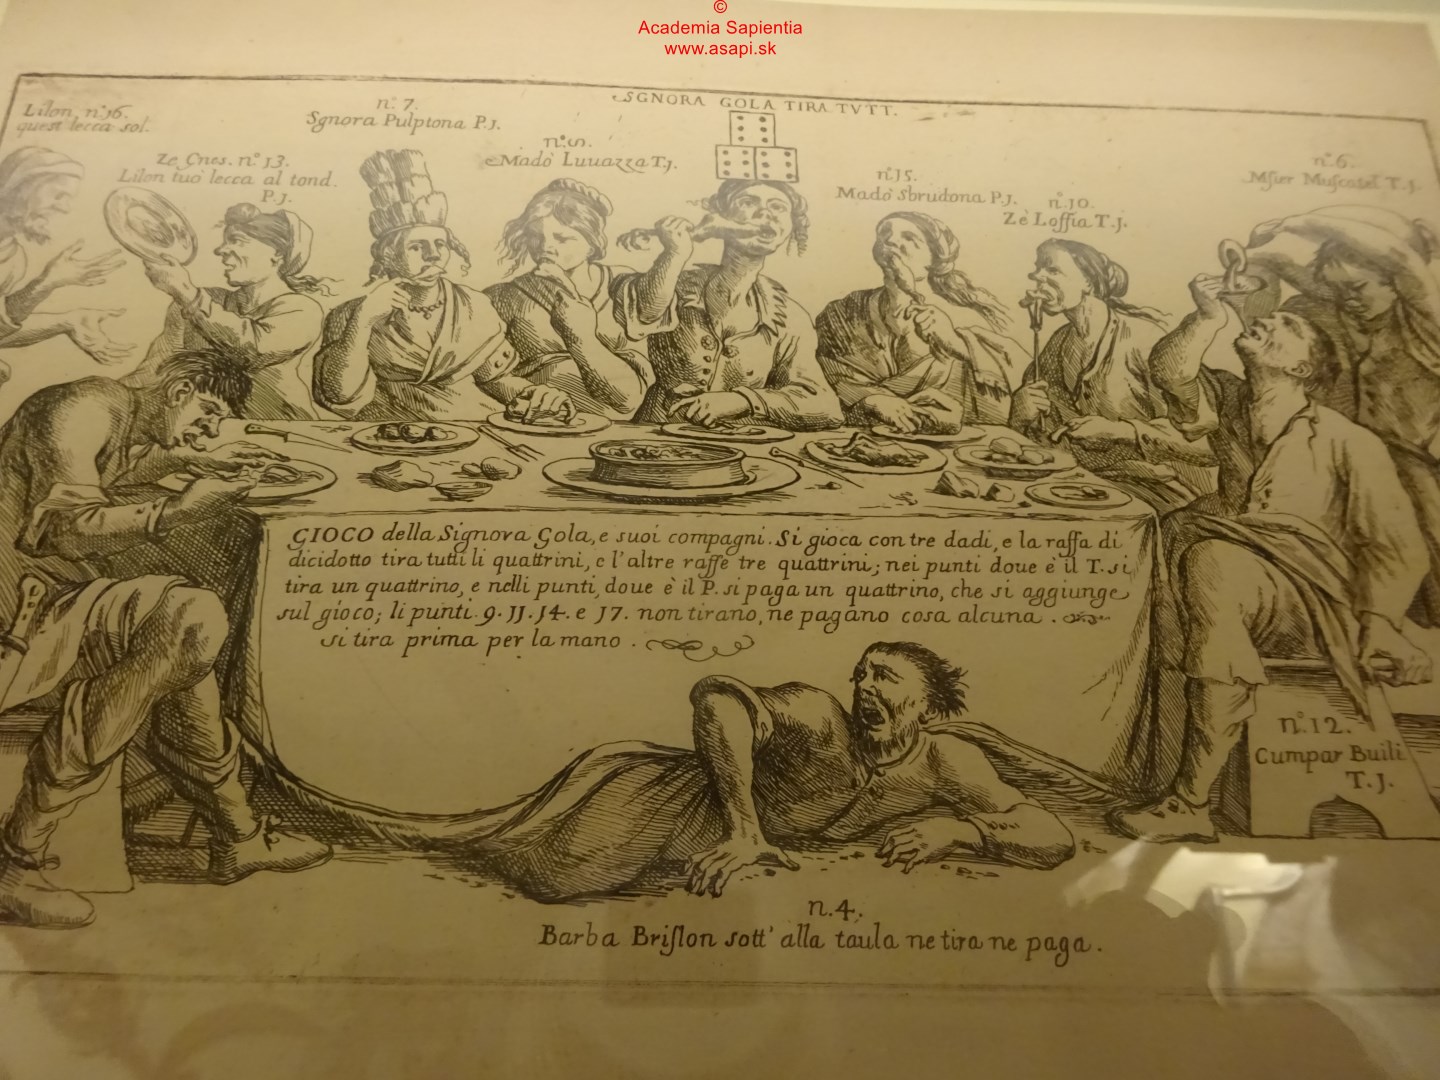 ©
Academia Sapientia
www.asapi.sk
SGNORA GOLA TIRA TVTT.
Lilon, n.º 16.
quest lecca sol.
Ze Cnes. n.º 13.
Lilon tuo lecca al tond.
P.J.
n.º 7.
Sgnora Pulptona P.J.
n.º 5.
Madò Luuazza T.J.
n.º 15.
Madò Sbrudona P.J.
n.º 10.
Zè Loffia T.J.
n.º 6.
Msier Muscatel T.J.
GIOCO della Signora Gola, e suoi compagni. Si gioca con tre dadi, e la raffa di
dicidotto tira tutti li quattrini, e l'altre raffe tre quattrini; nei punti doue è il T. si
tira un quattrino, e nelli punti, doue è il P. si paga un quattrino, che si aggiunge
sul gioco; li punti 9. 11. 14. e 17. non tirano, ne pagano cosa alcuna.
si tira prima per la mano.
n.º 12.
Cumpar Builì
T.J.
n. 4.
Barba Brislon sott' alla taula ne tira ne paga.